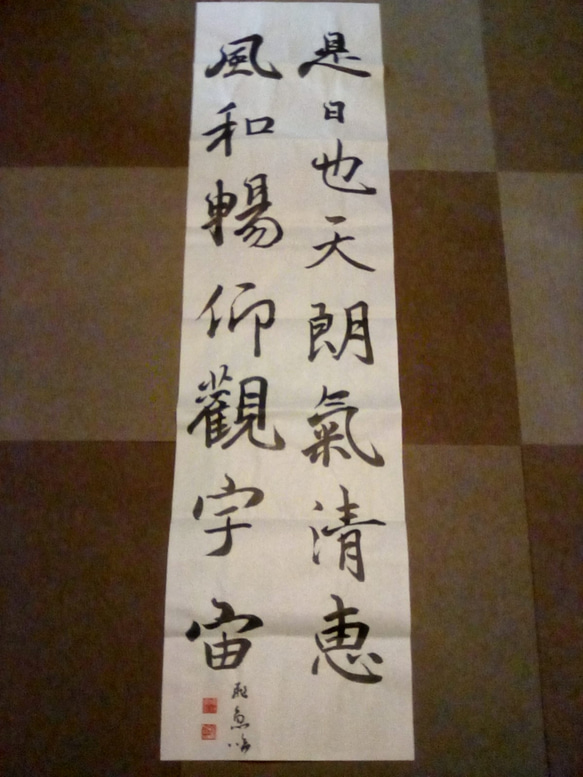 是日也天朗氣清恵
風和暢仰觀宇宙